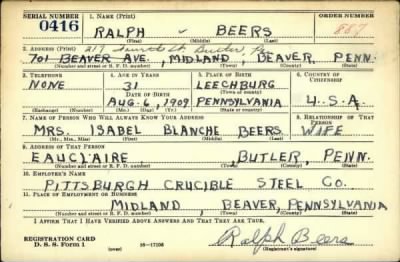 SERIAL NUMBER 1. NAME (Print) ORDER NUMBER
0416 RALPH - BEERS 887
(First) (Middle) (Last)
2. ADDRESS (Print) 217 Fourth St. Butler, Pa
701 BEAVER AVE., MIDLAND, BEAVER, PENN.
(Number and street or R. F. D. number) (Town) (County) (State)
3. TELEPHONE 4. AGE IN YEARS 5. PLACE OF BIRTH 6. COUNTRY OF CITIZENSHIP
NONE 31 LEECHBURG
DATE OF BIRTH (Town or county)
AUG. 6, 1909 PENNSYLVANIA U.S.A.
(Exchange) (Number) (Mo.) (Day) (Yr.) (State or country)
7. NAME OF PERSON WHO WILL ALWAYS KNOW YOUR ADDRESS 8. RELATIONSHIP OF THAT PERSON
MRS. ISABEL BLANCHE BEERS. WIFE
(Mr., Mrs., Miss) (First) (Middle) (Last)
9. ADDRESS OF THAT PERSON
EAUCLAIRE BUTLER, PENN.
(Number and street or R. F. D. number) (Town) (County) (State)
10. EMPLOYER'S NAME
PITTSBURGH CRUCIBLE STEEL CO.
11. PLACE OF EMPLOYMENT OR BUSINESS
MIDLAND, BEAVER, PENNSYLVANIA
(Number and street or R. F. D. number) (Town) (County) (State)
I AFFIRM THAT I HAVE VERIFIED ABOVE ANSWERS AND THAT THEY ARE TRUE.
REGISTRATION CARD
D. S. S. Form 1 (over) 16-17105 Ralph Beers
(Registrant's signature)